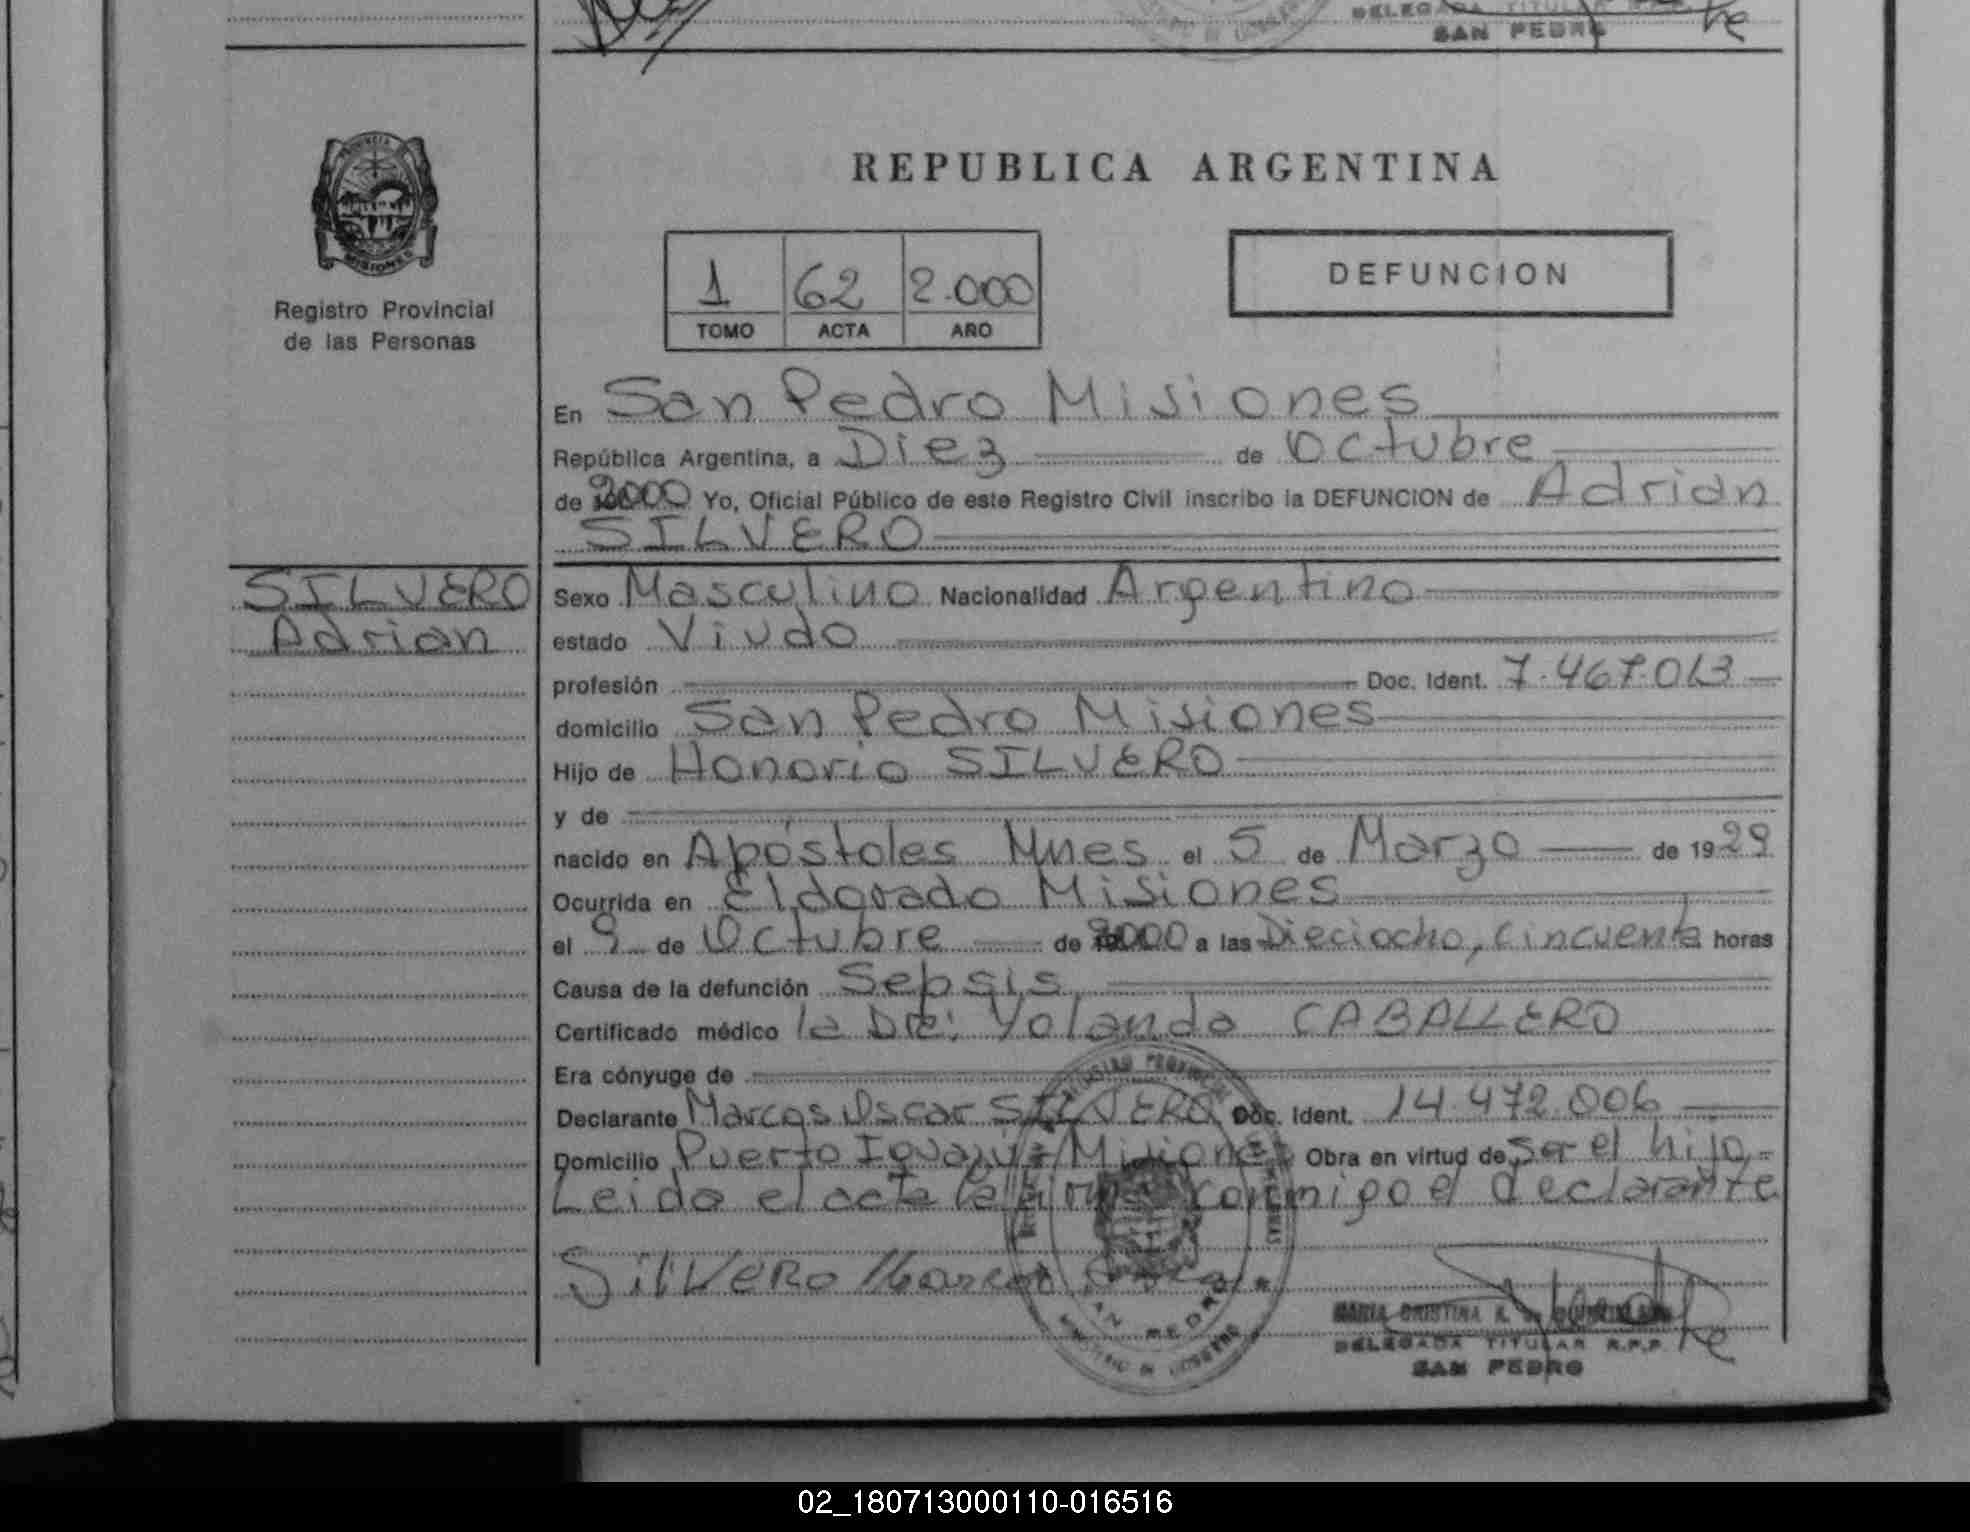 DELEGADA TITULAR
SAN PEDRO
PROVINCIA
MISIONES
Registro Provincial
de las Personas
REPUBLICA ARGENTINA
1 62 2.000
TOMO ACTA AÑO
DEFUNCION
En San Pedro Misiones
República Argentina, a Diez de Octubre
de 2000 Yo, Oficial Público de este Registro Civil inscribo la DEFUNCION de Adrian
SILVERO
SILVERO
Adrian
Sexo Masculino Nacionalidad Argentino
estado Viudo
profesión Doc. Ident. 7.467.013
domicilio San Pedro Misiones
Hijo de Honorio SILVERO
y de
nacido en Apóstoles Mnes el 5 de Marzo de 1929
Ocurrida en Eldorado Misiones
el 9 de Octubre de 2000 a las Dieciocho, cincuenta horas
Causa de la defunción Sepsis
Certificado médico la Dra: Yolanda CABALLERO
Era cónyuge de
Declarante Marcos Oscar SILVERO Doc. Ident. 14.472.006
Domicilio Puerto Iguazú Misiones Obra en virtud de ser el hijo.=
Leida el acta la firma conmigo el declarante
Silvero Marcos
SAN PEDRO
MINISTERIO DE GOBIERNO
MARIA CRISTINA R.
DELEGADA TITULAR R.P.P.
SAN PEDRO
02_180713000110-016516